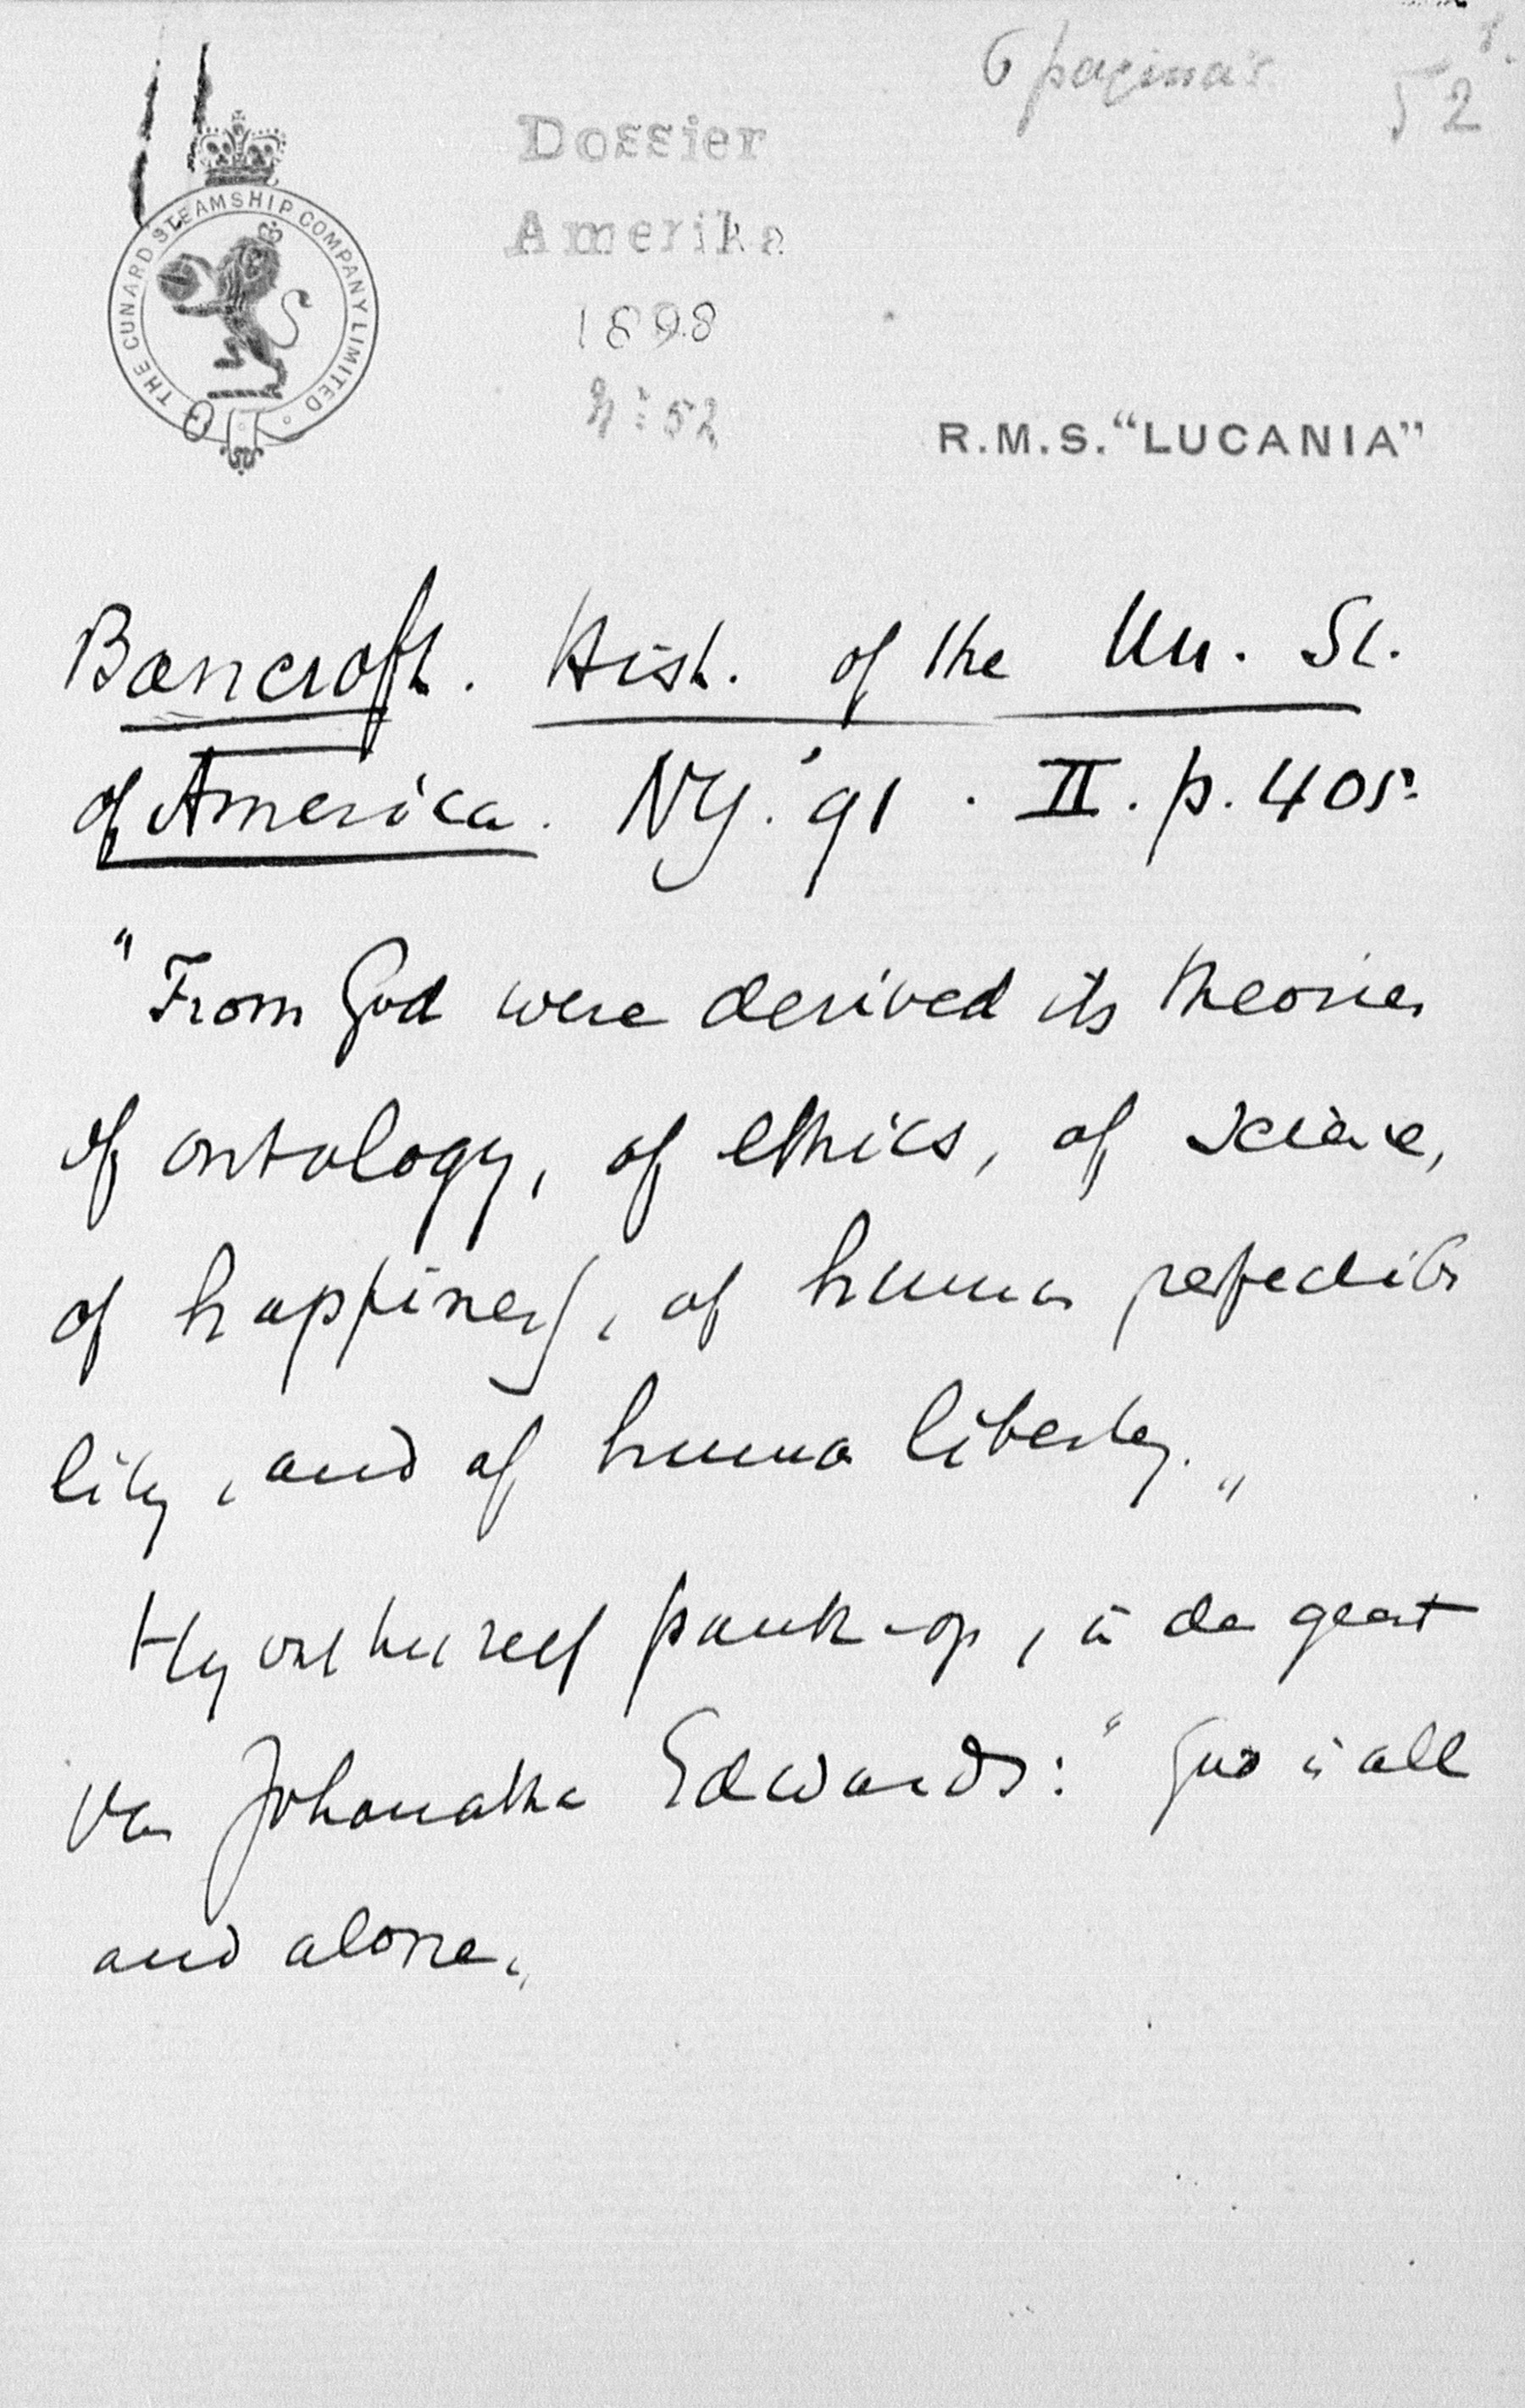 6 pagina's
52
Dossier
Amerika
1898
N: 52
THE CUNARD STEAMSHIP COMPANY LIMITED
R.M.S. "LUCANIA"
Bancroft. Hist. of the Un. St.
of America. NY. '91. II. p. 405.
"From God were derived its theories
of ontology, of ethics, of science,
of happiness, of human perfectibi
lity, and of human liberty."
Hy punk-op, in de geest
van Johonathan Edwards: "God is all
and alone."